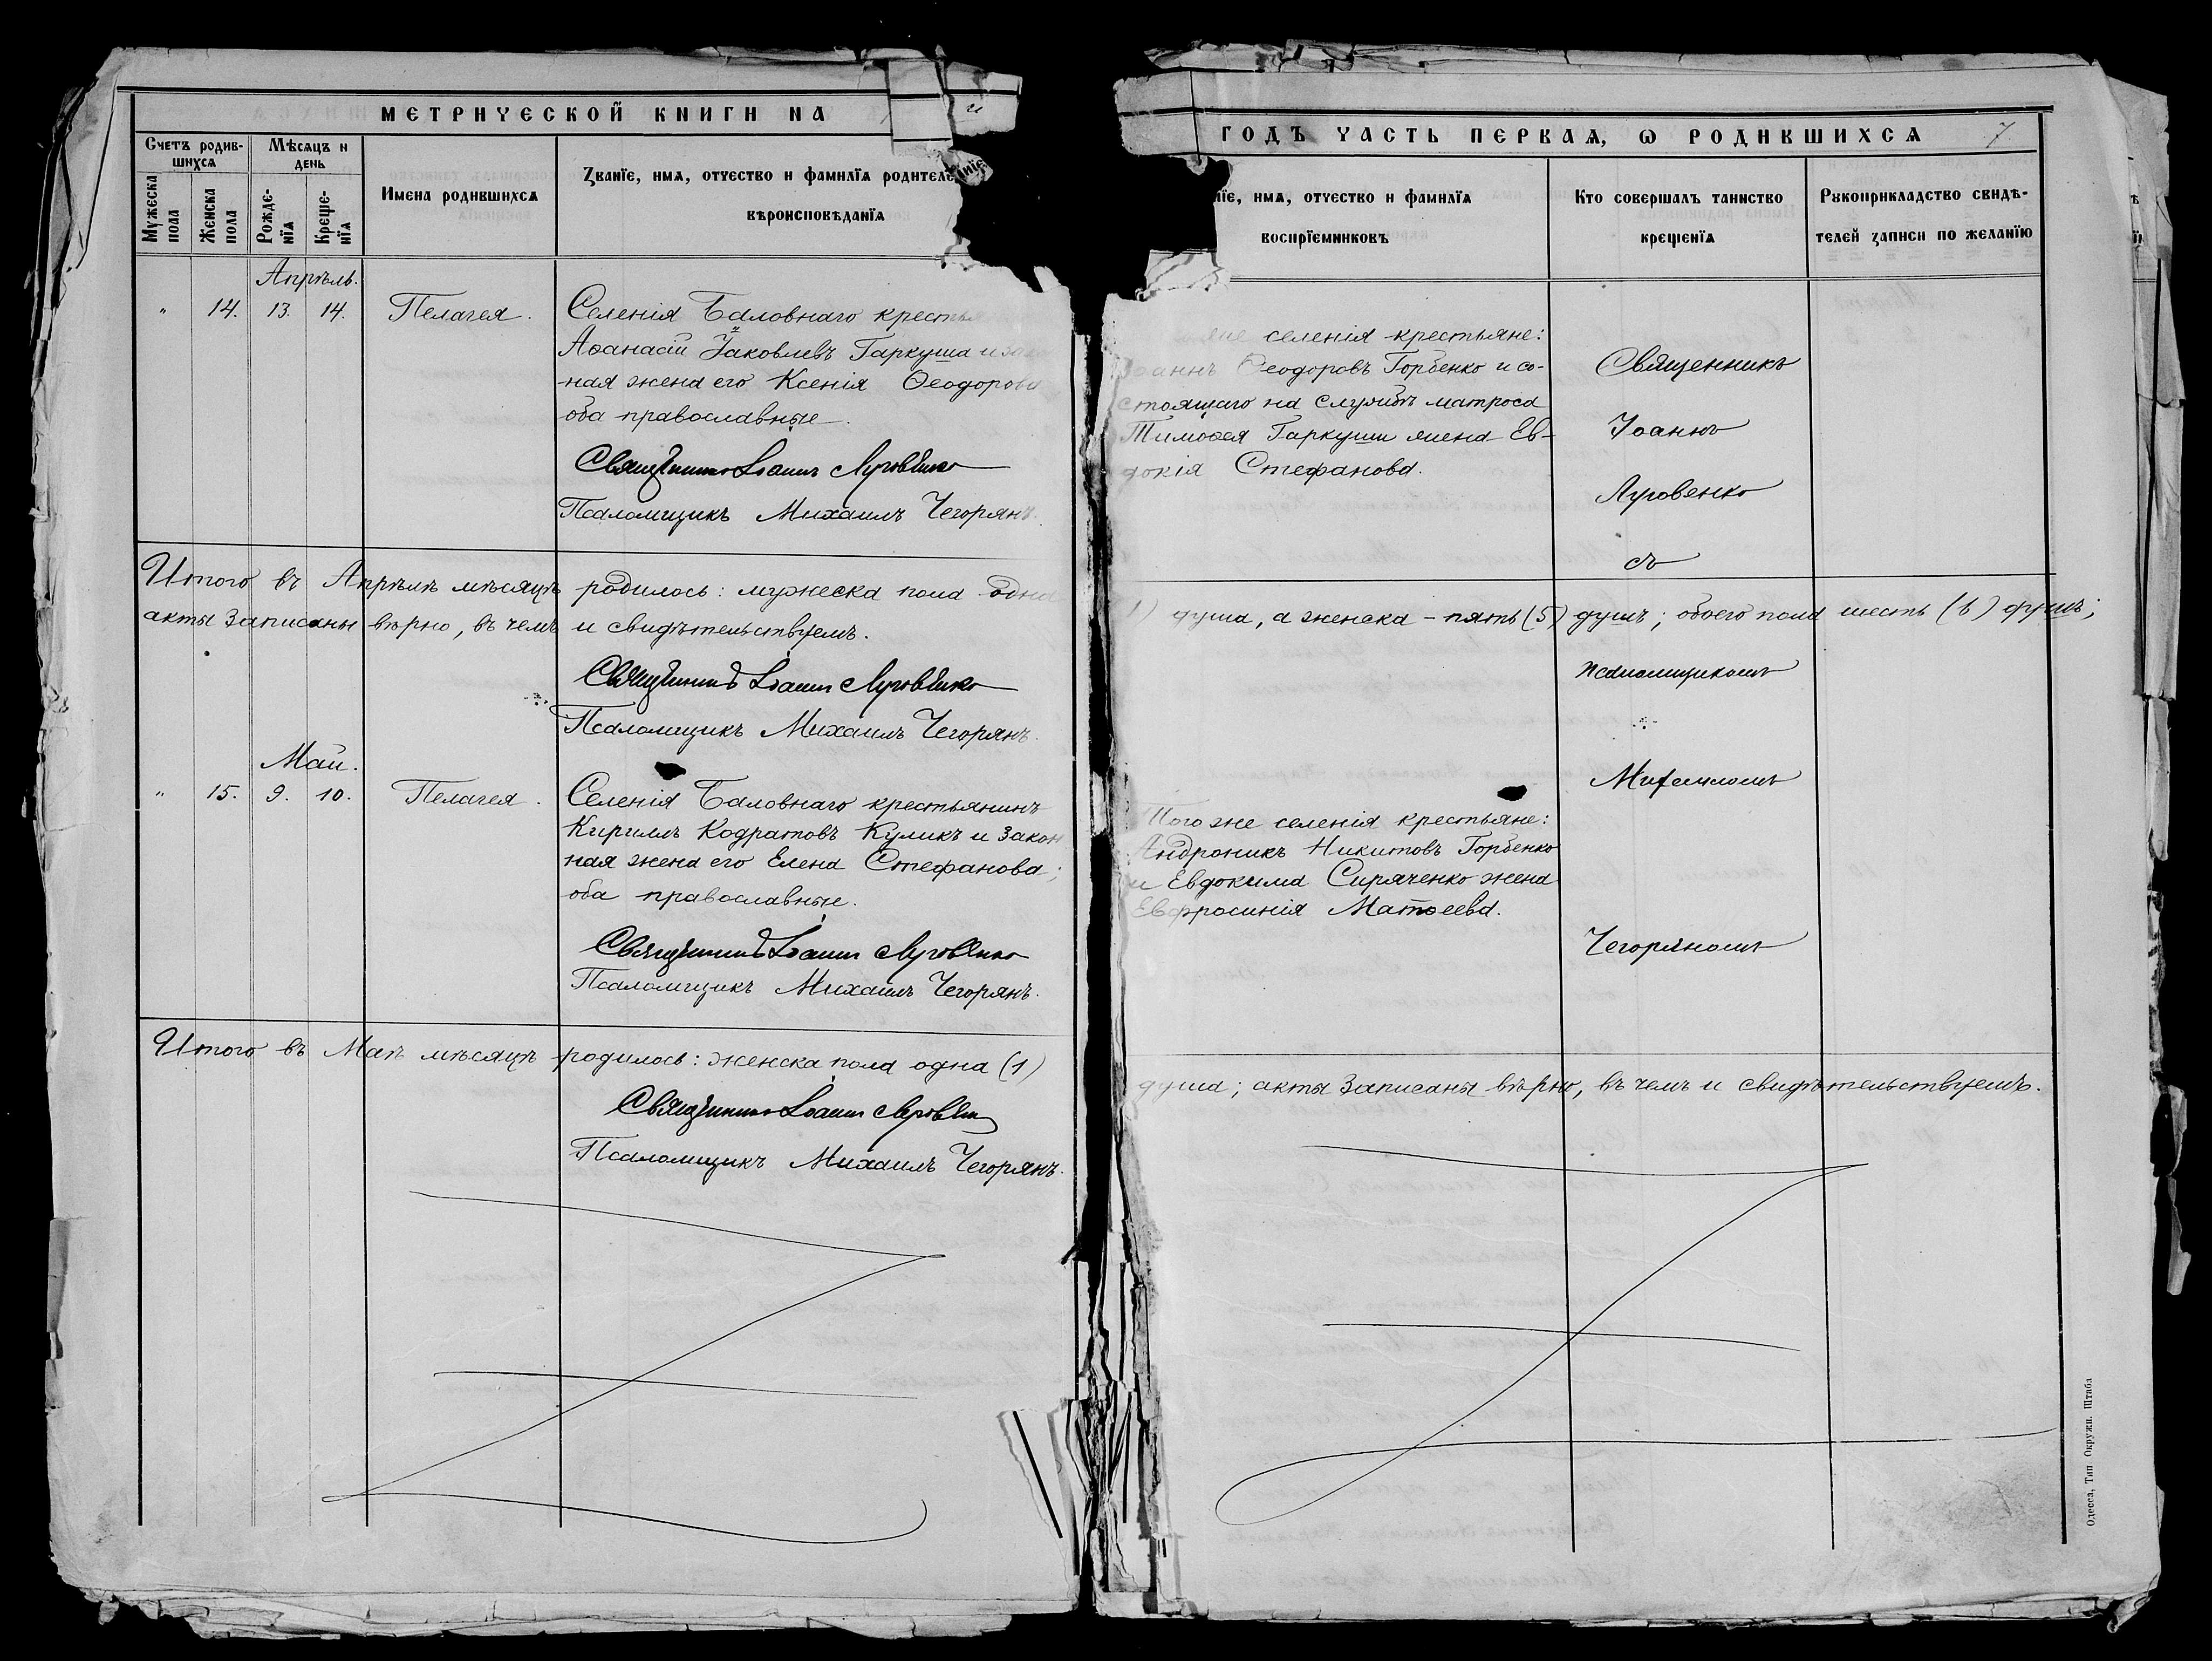 МЕТРИЧЕСКОЙ КНИГИ НА
Счетъ родив-
шихся
Мѣсяцъ и
день
Мужеска
пола
Женска
пола
Рожде-
нїя
Креще-
нїя
Имена родившихся
Званїе, имя, отчество и фамилїя родителе
вѣроисповѣданїя
Апрѣль.
" 14. 13. 14. Пелагея.
Селенія Баловнаго крестья
Аѳанасій Іаковлевъ Гаркуша и зак
ная жена его Ксенія Ѳеодорова
оба православные.
Священникъ Іоаннъ Луговенко
Псаломщикъ Михаилъ Чегорянъ.
Итого въ Апрѣлѣ мѣсяцѣ родилось: мужеска пола одна
акты записаны вѣрно, въ чемъ и свидѣтельствуемъ.
Священникъ Іоаннъ Луговенко
Псаломщикъ Михаилъ Чегорянъ.
Май.
" 15. 9. 10. Пелагея.
Селенія Баловнаго крестьянинъ
Кириллъ Кодратовъ Куликъ и закон
ная жена его Елена Стефанова;
оба православные.
Священникъ Іоаннъ Луговенко
Псаломщикъ Михаилъ Чегорянъ.
Итого въ Маѣ мѣсяцѣ родилось: женска пола одна (1)
Священникъ Іоаннъ Луговенко
Псаломщикъ Михаилъ Чегорянъ.
ГОДЪ ЧАСТЬ ПЕРВАЯ, Ѡ РОДИВШИХСЯ 7
нїе, имя, отчество и фамилїя
воспрїемниковъ
Кто совершалъ таинство
крещенїя
Рукоприкладство свидѣ-
телей записи по желанїю
селенія крестьяне:
Іоаннъ Ѳеодоровъ Горбенко и со-
стоящаго на службѣ матроса
Тимоѳея Гаркуши жена Ев-
докія Стефанова.
Священникъ
Іоаннъ
Луговенко
съ
1) душа, а женска - пять (5) душъ; обоего пола шесть (6) душъ;
псаломщикомъ
Михаиломъ
Того же селенія крестьяне:
Андроникъ Никитовъ Горбенко
и Евдокима Сиряченко жена
Евфросинія Матѳеева.
Чегоряномъ
душа; акты записаны вѣрно, въ чемъ и свидѣтельствуемъ.
Одесса, Тип. Окружн. Штаба